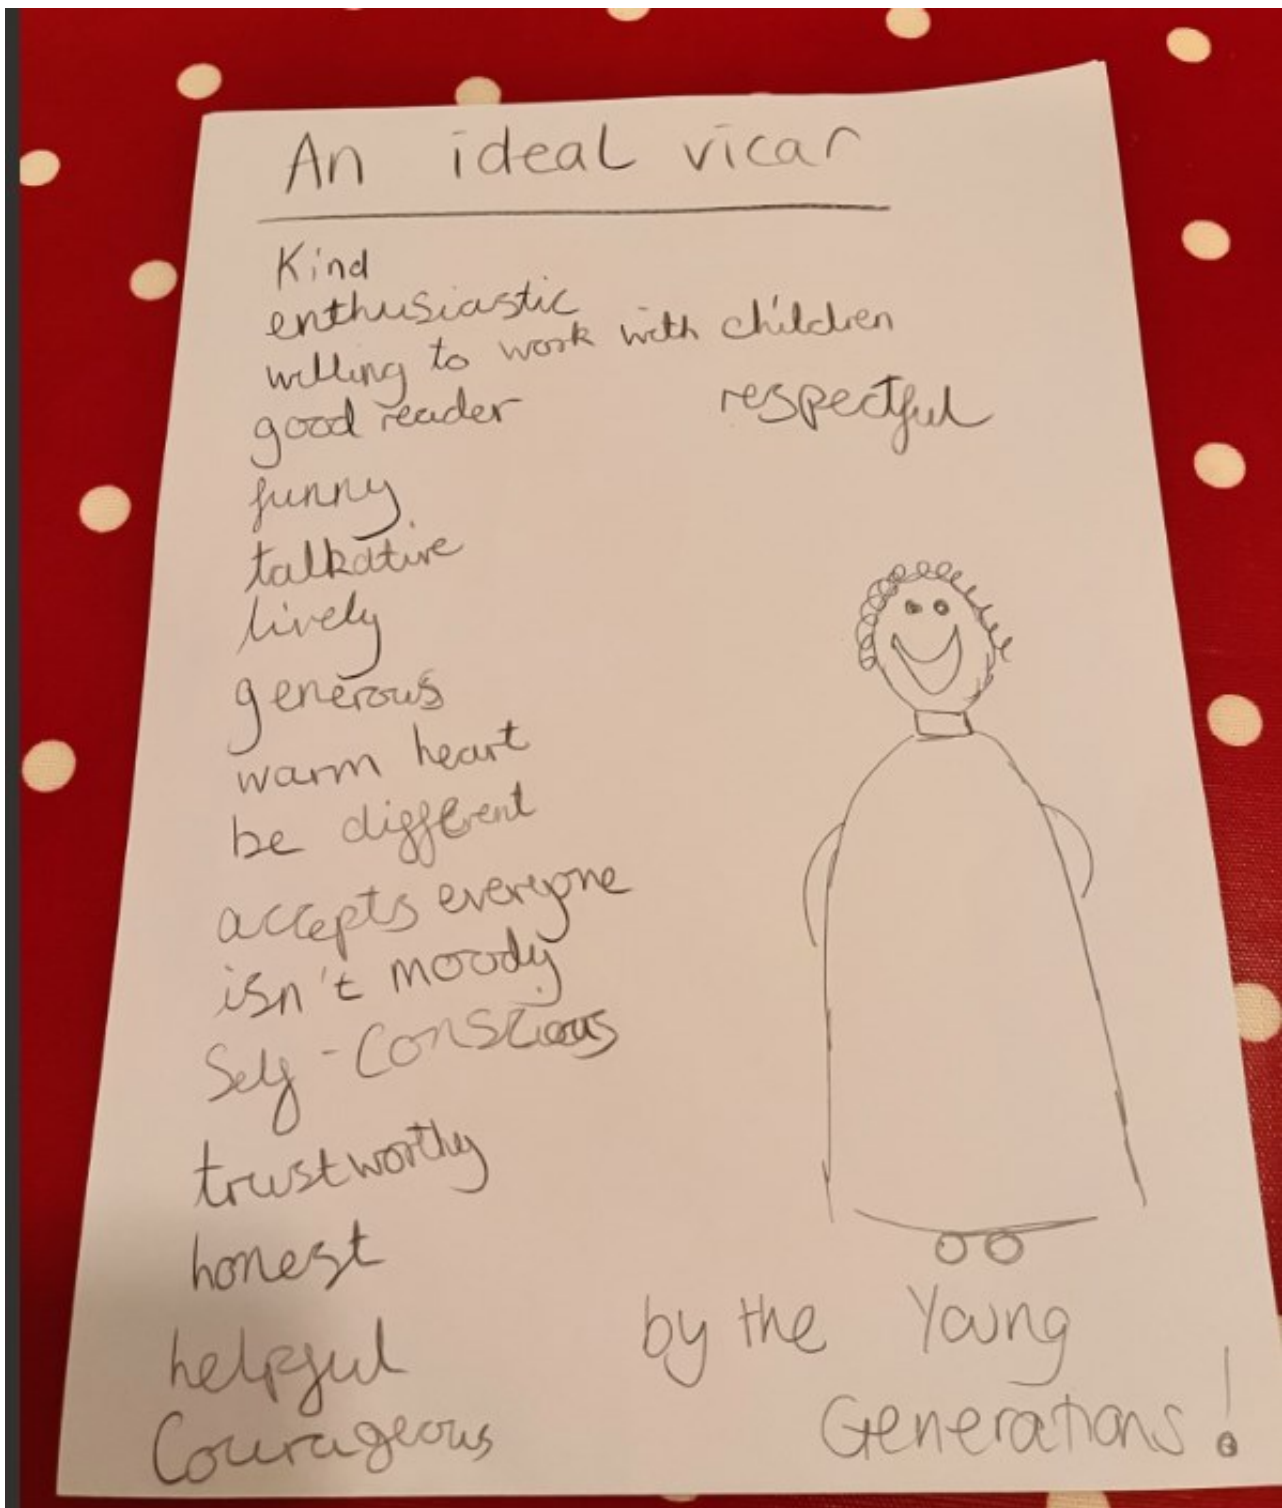 An ideal vicar
Kind
enthusiastic
willing to work with children
good reader
respectful
funny
talkative
lively
generous
warm heart
be different
accepts everyone
isn't moody
Self-Conscious
trustworthy
honest
helpful
Courageous
by the Young
Generations!